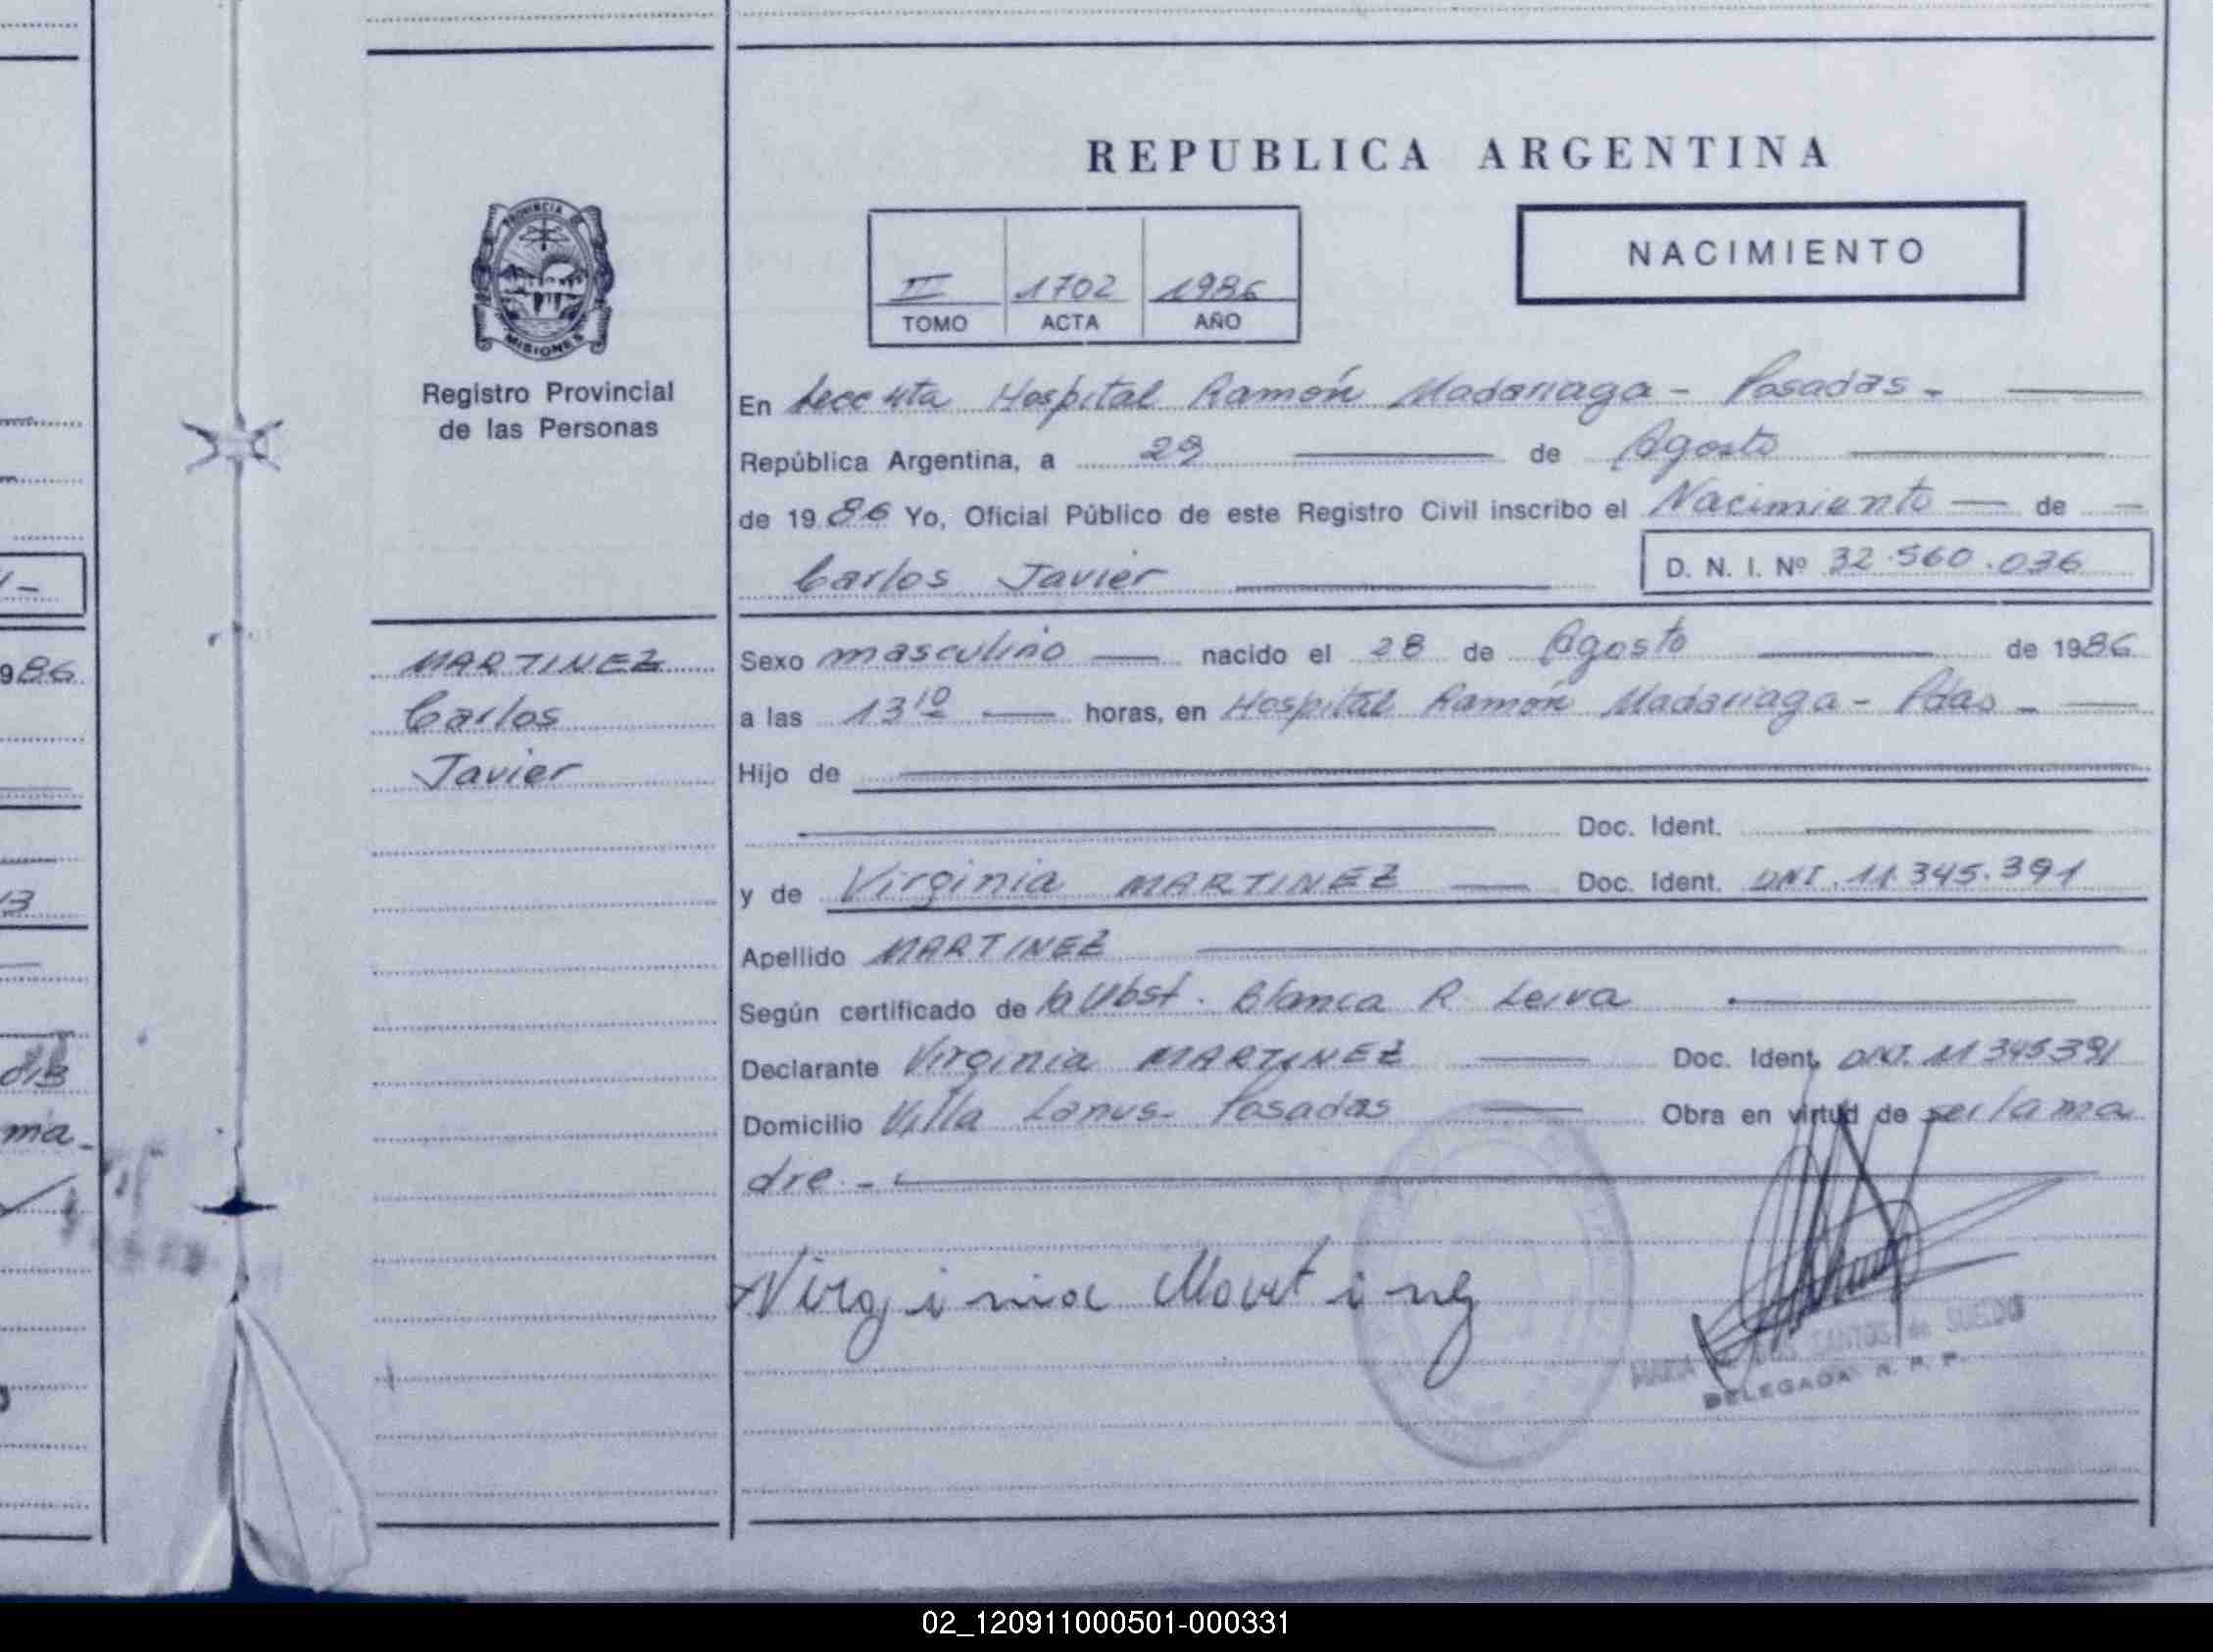 REPUBLICA ARGENTINA
NACIMIENTO
PROVINCIA
MISIONES
Registro Provincial
de las Personas
III 1702 1986
TOMO ACTA AÑO
En Secc 4ta Hospital Ramón Madariaga - Posadas -
República Argentina, a 29 de Agosto
de 1986 Yo, Oficial Público de este Registro Civil inscribo el Nacimiento de
Carlos Javier
D. N. I. Nº 32.560.036
MARTINEZ
Carlos
Javier
Sexo masculino nacido el 28 de Agosto de 1986
a las 13 10 horas, en Hospital Ramón Madariaga - Pdas -
Hijo de
Doc. Ident.
y de Virginia MARTINEZ Doc. Ident. DNI. 11.345.391
Apellido MARTINEZ
Según certificado de la Obst. Blanca R. Leiva
Declarante Virginia MARTINEZ Doc. Ident. DNI. 11345391
Domicilio Villa Lanus - Posadas Obra en virtud de ser la ma
dre. -
Virginia Martinez
SANTOS de SUELDO
DELEGADA R. P. P.
986
13
ma -
02_120911000501-000331